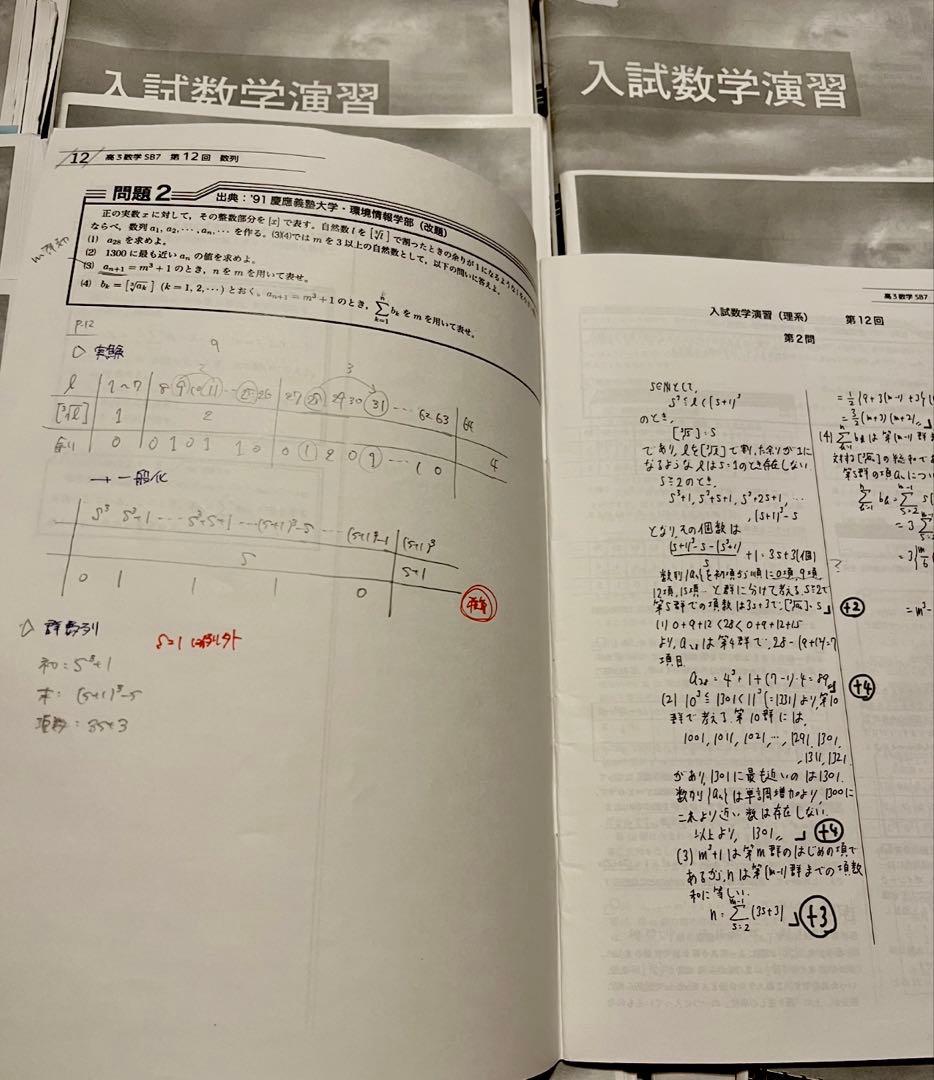 入試数学演習
入試数学演習
12 高3数学SB7 第12回 数列
問題2 出典：'91 慶應義塾大学・環境情報学部（改題）
正の実数 x に対して，その整数部分を [x] で表す。自然数 l を [∛l] で割ったときの余りが1になるような l を
ならべ，数列 a₁, a₂, …, aₙ, … を作る。(3)(4)では m を3以上の自然数として，以下の問いに答えよ。
(1) a₂₈ を求めよ。
(2) 1300 に最も近い aₙ の値を求めよ。
(3) aₙ₊₁ = m³ + 1 のとき，n を m を用いて表せ。
(4) bₖ = [∛aₖ] (k = 1, 2, …) とおく。aₙ₊₁ = m³ + 1 のとき，∑ₖ₌₁ⁿ bₖ を m を用いて表せ。
p.12
9
▷ 実験
3
l 1~7 8 9 10 11 … 25 26 27 28 29 30 31 … 62 63 64
[∛l] 1 2
余り 0 0 1 0 1 1 0 0 1 2 0 1 … 1 0 4
→ 一般化
s³ s³+1 … s³+s+1 … (s+1)³-s … (s+1)³-1 (s+1)³
s s+1
0 1 1 1 0
▷ 群数列
s=1 は例外
初：s³+1
末：(s+1)³-s
項数：3s+3
高3数学SB7
入試数学演習（理系） 第12回
第2問
s∈Nとして,
s³≦l<(s+1)³
のとき,
[∛l]=s
であり, lを[∛l]で割った余りが1に
なるようなlはs=1のとき存在しない
s≧2のとき,
s³+1, s³+s+1, s³+2s+1, …
,(s+1)³-s
となり,その個数は
{(s+1)³-s-(s³+1)}/s +1=3s+3(個)
数列{aₙ}を初項から順に0項,9項,
12項,15項…と群に分けて考える. s≧2で
第s群での項数は3s+3で,[∛aₙ]=s 」 +2
(1) 0+9+12<28<0+9+12+15
より, a₂₈は第4群で,28-(9+12)=7
項目
a₂₈=4³+1+(7-1)・4=89 」 +4
(2) 10³≦1301<11³(=1331)より,第10
群で考える. 第10群には,
1001, 1011, 1021, …, 1291, 1301,
,1311, 1321
があり,1301に最も近いのは1301.
数列{aₙ}は単調増加より,1300に
これより近い数は存在しない.
以上より, 1301 」 +4
(3) m³+1は第m群のはじめの項で
あるから,nは第(m-1)群までの項数
和に等しい.
n=∑ₛ₌₂ᵐ⁻¹(3s+3) 」 +3